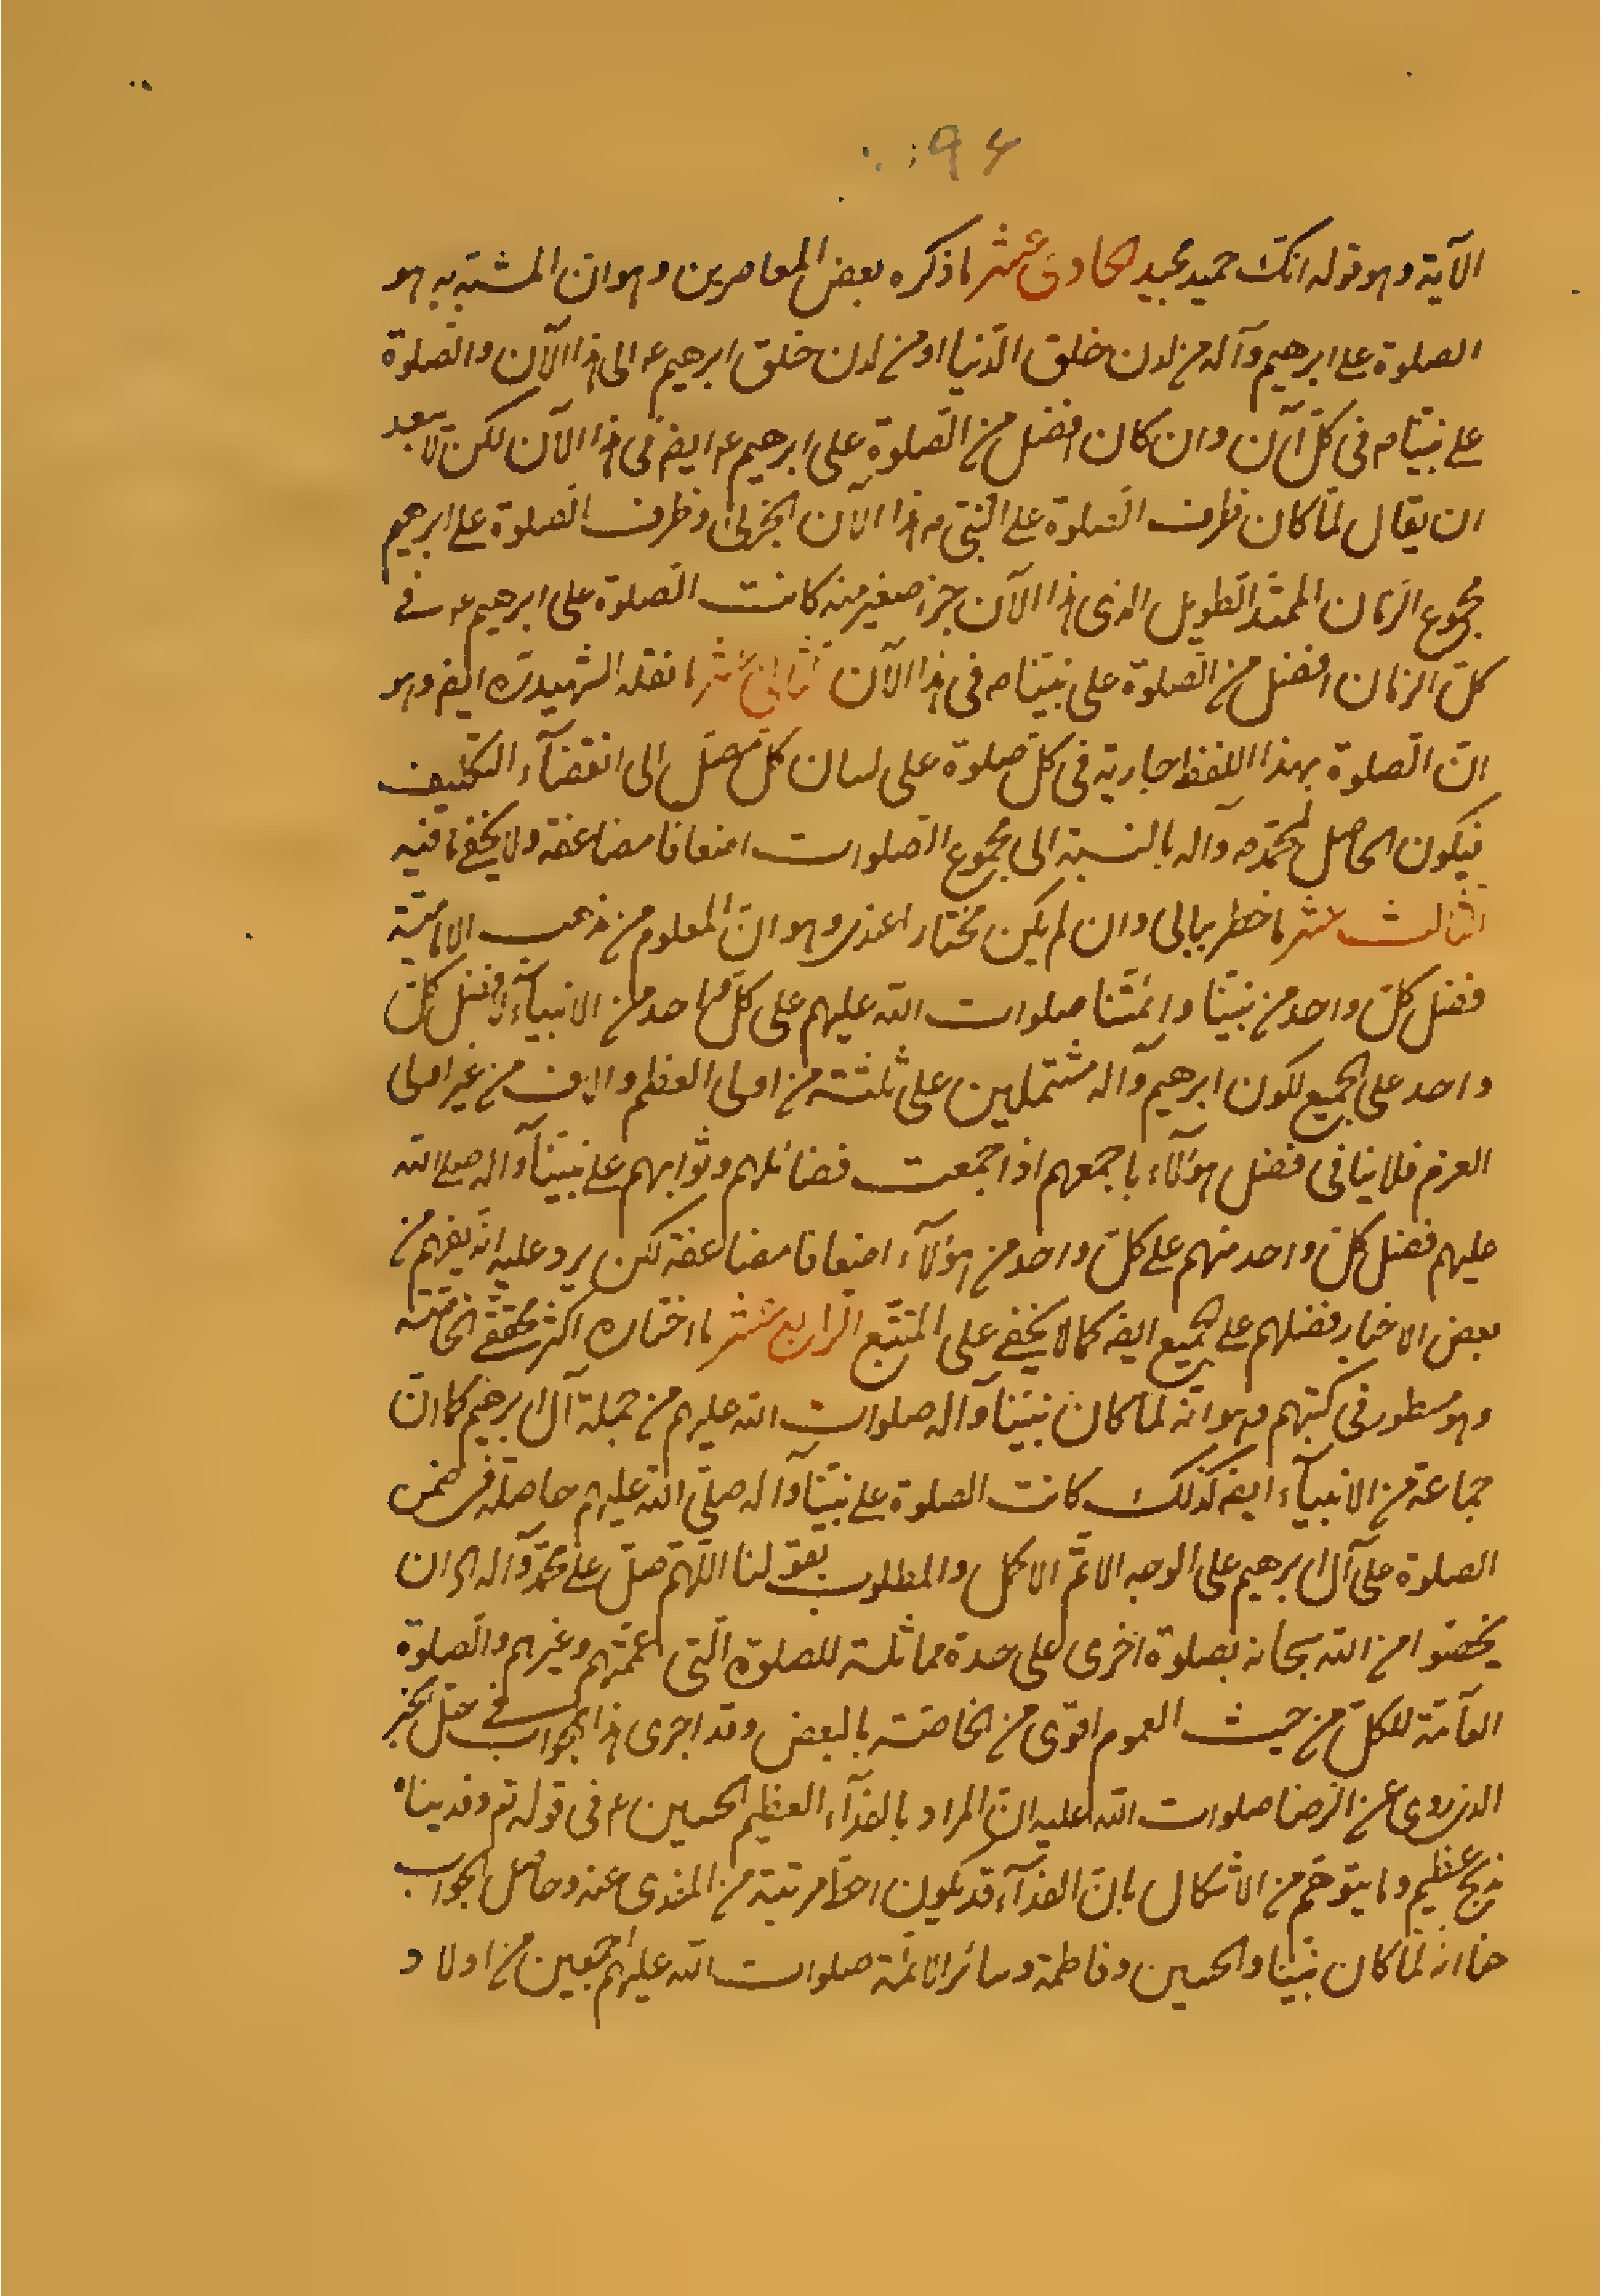 ۹۶
الآية وهو قوله انك حميد مجيد الحادى عشر ما ذكره بعض المعاصرين وهو ان المشبه به هو
الصلوة على ابرهيم وآله من لدن خلق الدنيا او من لدن خلق ابرهيم ع الى هذا الآن والصلوة
على نبينا ص فى كل آن وان كان افضل من الصلوة على ابرهيم ع ايض فى هذا الآن لكن لا يبعد
ان يقال لما كان ظرف الصلوة على النبى ص هذا الآن الجزئى وظرف الصلوة على ابرهيم
مجموع الزمان الممتد الطويل الذى هذا الآن جزء صغير منه كانت الصلوة على ابرهيم ع فى
كل الزمان افضل من الصلوة على نبينا ص فى هذا الآن الثانى عشر ما نقله الشهيد ره ايض وهو
ان الصلوة بهذا اللفظ جارية فى كل صلوة على لسان كل مصل الى انقضآء التكليف
فيكون الحاصل لمحمد ص وآله بالنسبة الى مجموع الصلوات اضعافا مضاعفة ولا يخفى ما فيه
الثالث عشر ما خطر ببالى وان لم يكن مختارا عندى وهو ان المعلوم من مذهب الامامية
فضل كل واحد من نبينا وائمتنا صلوات الله عليهم على كل واحد من الانبيآء لا فضل كل
واحد على الجميع لكون ابرهيم وآله مشتملين على ثلثة من اولى العظم والاف من غير اولى
العزم فلا ينافى فضل هؤلآء باجمعهم اذا جمعت فضائلهم وثوابهم على نبينا وآله صلى الله
عليهم فضل كل واحد منهم على كل واحد من هؤلآء اضعافا مضاعفة لكن يرد عليه انه يفهم من
بعض الاخبار فضلهم على الجميع ايض كما لا يخفى على المتتبع الرابع عشر ما اختاره اكثر محققى الخاصة
وهو مسطور فى كتبهم وهو انه لما كان نبينا وآله صلوات الله عليهم من جملة آل ابرهيم كما ان
جماعة من الانبيآء ايض كذلك كانت الصلوة على نبينا وآله صلى الله عليهم حاصلة فى ضمن
الصلوة على آل ابرهيم على الوجه الاتم الاكمل والمطلوب بقولنا اللهم صل على محمد وآله اى ان
يخصوا من الله سبحانه بصلوة اخرى على حدة مماثلة للصلوة التى عمتهم وغيرهم والصلوة
العآمة للكل من حيث العموم اقوى من الخاصة بالبعض وقد اجرى هذا الجواب فى حق الخبر
الذى روى عن الرضا صلوات الله عليه ان المراد بالفدآء العظيم الحسين ع فى قوله تع وفديناه
بذبح عظيم وما يتوهم من الاشكال بان الفدآء قد يكون احط مرتبة من المفدى عنه وحاصل الجواب
هنا انه لما كان نبينا والحسين وفاطمة وسائر الائمة صلوات الله عليهم اجمعين من اولاد